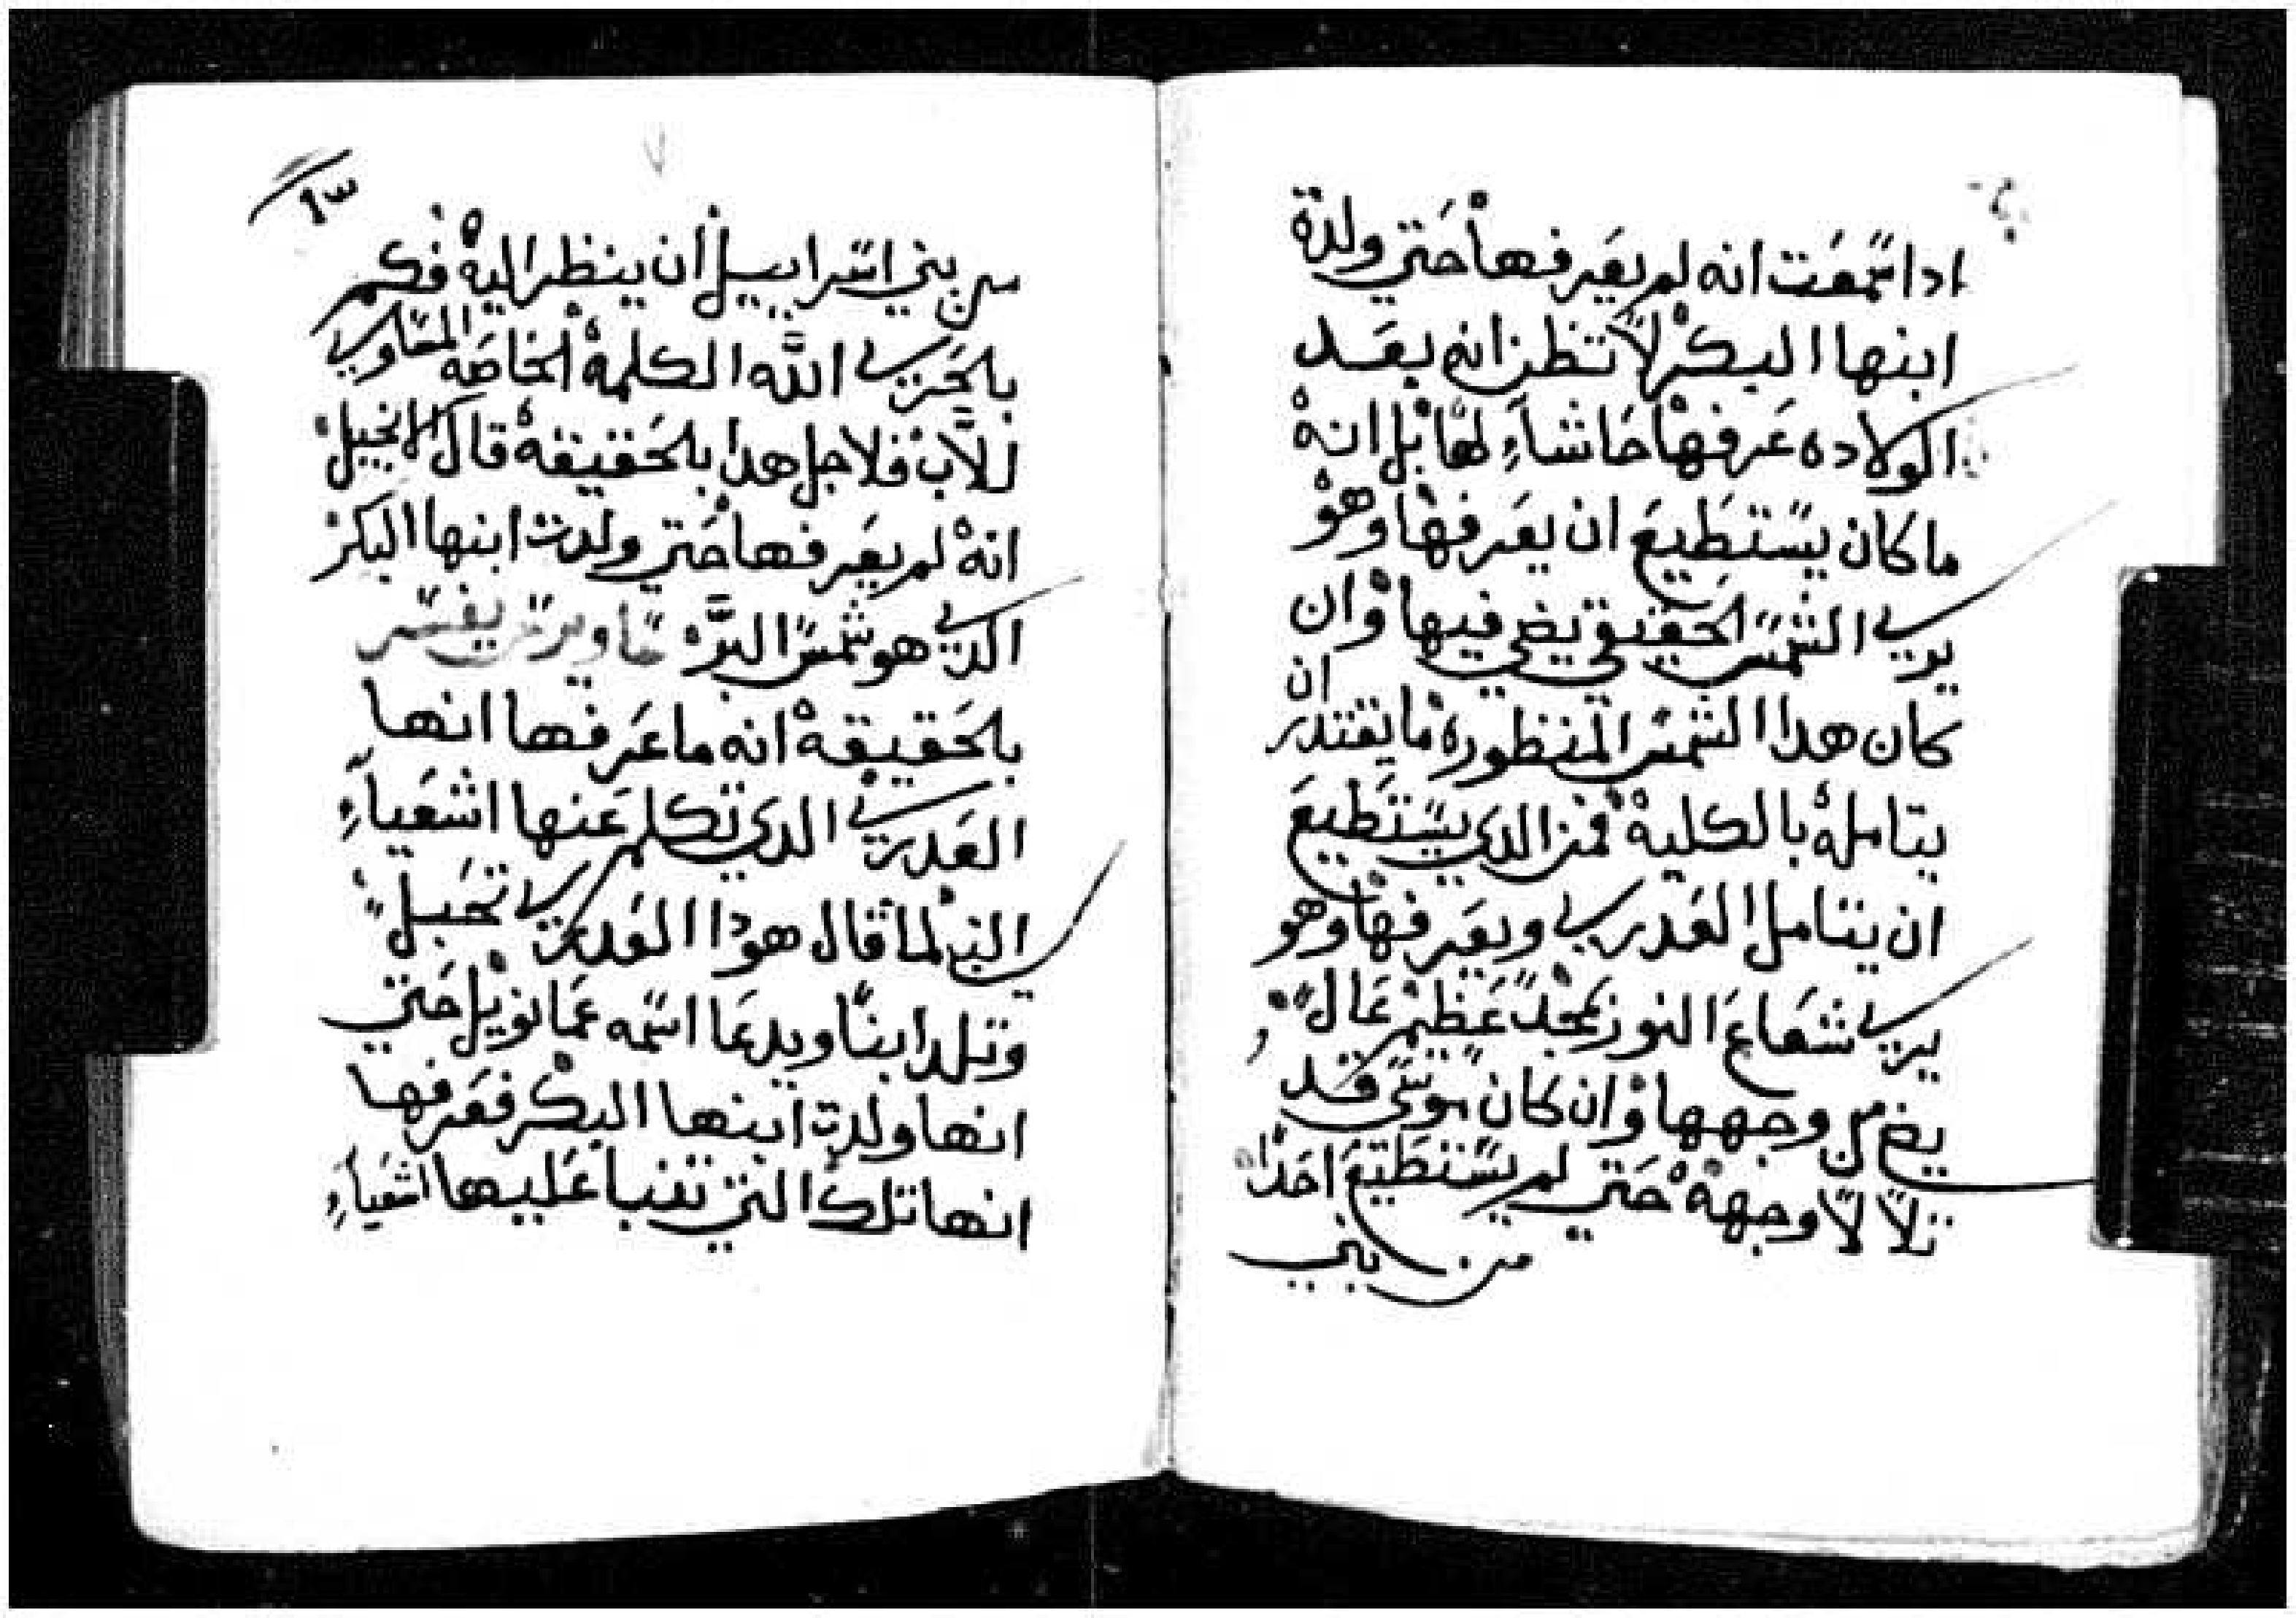 ادا سمعت انه لم يعرفها حتي ولدة
ابنها البكر لا تظن انه بعد
الولاده عرفها حاشاء لها بل انه
ما كان يستطيع ان يعرفها وهو
يري الشمس الحقيقي يضي فيها وان
كان هدا الشمس المنظوره ما يقتدر ان
يتامله بالكلية فمن الدي يستطيع
ان يتامل العدري ويعرفها وهو
يري شعاع النور بمجد عظيم عال
يضي من وجهها وان كان موسي قد
تلالا وجهه حتي لم يستطيع احدا
من بني
من بني اسراييل أن ينظر اليه فكم
بلحري الله الكلمة الخاصه المساوي
للآب فلاجل هدا بلحقيقة قال الانجيل
انه لم يعرفها حتي ولدت ابنها البكر
الدي هو شمس البر يفسر
بلحقيقة انه ما عرفها انها
العدري الدي تكلم عنها اشعياء
النبي لما قال هودا العدري تحبل
وتلد ابنا ويدعا اسمه عمانويل حتي
انها ولدت ابنها البكر فعرفها
انها تلك التي تنبا عليها اشعياء